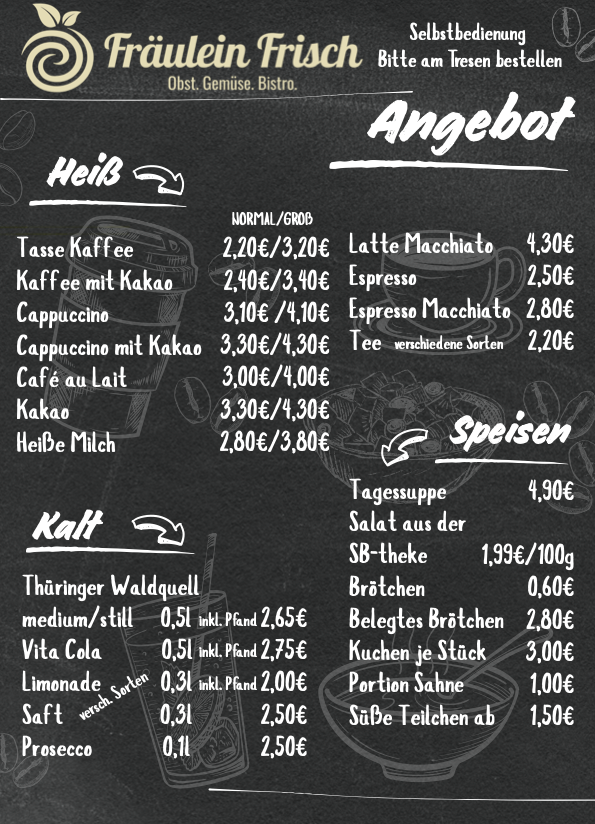 Fräulein Frisch
Obst. Gemüse. Bistro.
Selbstbedienung
Bitte am Tresen bestellen
Angebot
Heiß
NORMAL/GROß
Tasse Kaffee 2,20€/3,20€
Kaffee mit Kakao 2,40€/3,40€
Cappuccino 3,10€ /4,10€
Cappuccino mit Kakao 3,30€/4,30€
Café au Lait 3,00€/4,00€
Kakao 3,30€/4,30€
Heiße Milch 2,80€/3,80€
Latte Macchiato 4,30€
Espresso 2,50€
Espresso Macchiato 2,80€
Tee verschiedene Sorten 2,20€
Speisen
Tagessuppe 4,90€
Salat aus der
SB-theke 1,99€/100g
Brötchen 0,60€
Belegtes Brötchen 2,80€
Kuchen je Stück 3,00€
Portion Sahne 1,00€
Süße Teilchen ab 1,50€
Kalt
Thüringer Waldquell
medium/still 0,5l inkl. Pfand 2,65€
Vita Cola 0,5l inkl. Pfand 2,75€
Limonade 0,3l inkl. Pfand 2,00€
versch. Sorten
Saft 0,3l 2,50€
Prosecco 0,1l 2,50€